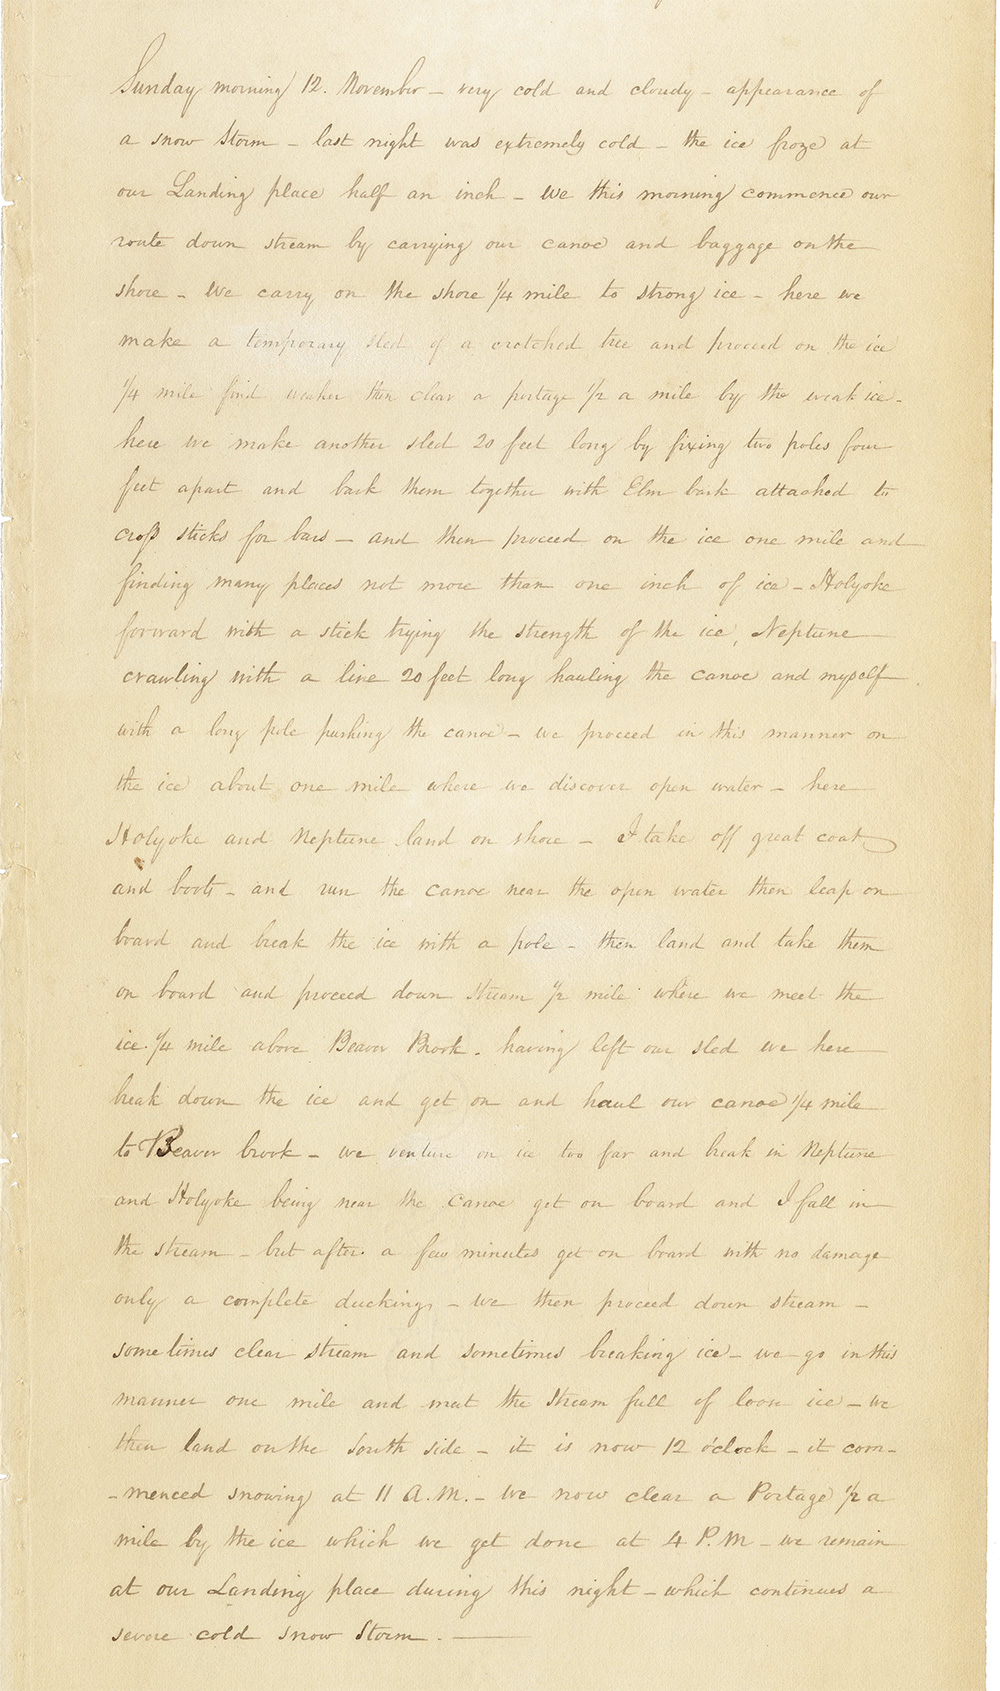 Sunday morning 12. November – very cold and cloudy – appearance of
a snow Storm – last night was extremely cold – the ice froze at
our Landing place half an inch – We this morning commence our
route down stream by carrying our canoe and baggage on the
shore – We carry on the shore 1/4 mile to strong ice – here we
make a temporary sled of a crotched tree and proceed on the ice
1/4 mile find weaker then clear a portage 1/2 a mile by the weak ice –
here we make another sled 20 feet long by fixing two poles four
feet apart and bark them together with Elm bark attached to
croſs sticks for bars – and then proceed on the ice one mile and
finding many places not more than one inch of ice – Holyoke
forward with a stick trying the strength of the ice, Neptune
crawling with a line 20 feet long hauling the canoe and myself
with a long pole pushing the canoe – we proceed in this manner on
the ice about one mile where we discover open water – here
Holyoke and Neptune land on shore – I take off great coat
and boots – and run the canoe near the open water then leap on
board and break the ice with a pole – then land and take them
on board and proceed down stream 1/2 mile where we meet the
ice. 1/4 mile above Beaver Brook. having left our sled we here
break down the ice and get on and haul our canoe 1/4 mile
to Beaver brook – we venture on ice too far and break in Neptune
and Holyoke being near the canoe get on board and I fall in
the stream – but after a few minutes get on board with no damage
only a complete ducking, – we then proceed down stream –
sometimes clear stream and sometimes breaking ice – we go in this
manner one mile and meet the stream full of loose ice – we
then land on the South side – it is now 12 o'clock – it com-
-menced snowing at 11 A.M. – We now clear a Portage 1/2 a
mile by the ice which we get done at 4 P.M – we remain
at our Landing place during this night – which continues a
severe cold snow Storm. –